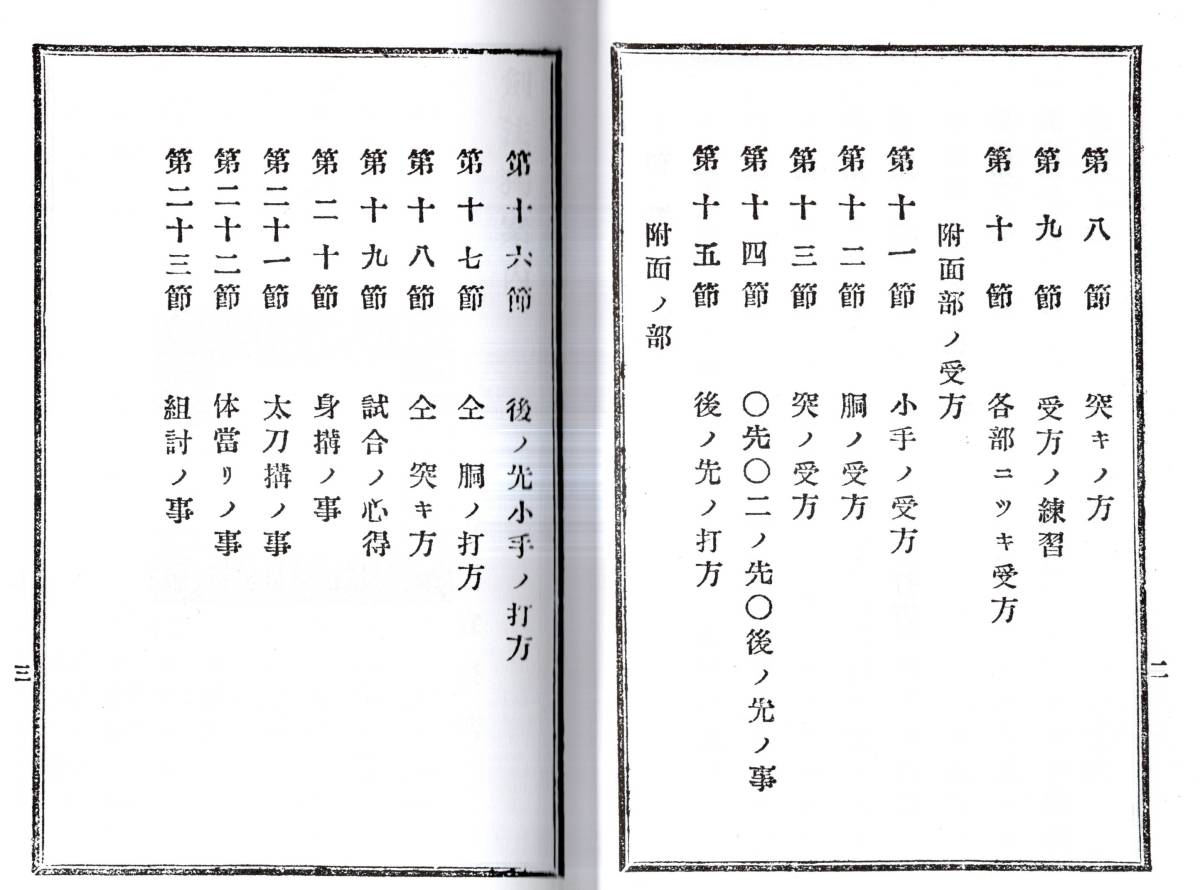 第八節　突キノ方
第九節　受方ノ練習
第十節　各部ニツキ受方
附面部ノ受方
第十一節　小手ノ受方
第十二節　胴ノ受方
第十三節　突ノ受方
第十四節　〇先〇二ノ先〇後ノ先ノ事
第十五節　後ノ先ノ打方
附面ノ部
二
第十六節　後ノ先小手ノ打方
第十七節　仝　胴ノ打方
第十八節　仝　突キ方
第十九節　試合ノ心得
第二十節　身搆ノ事
第二十一節　太刀搆ノ事
第二十二節　体當リノ事
第二十三節　組討ノ事
三